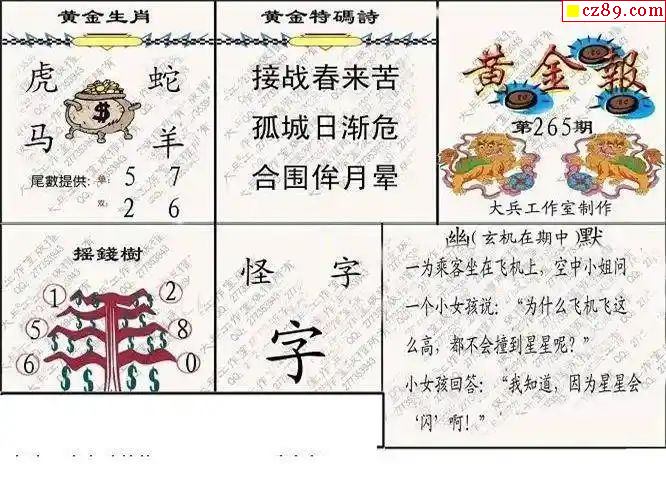 cz89.com
黄金生肖
虎 蛇
马 羊
尾數提供: 单: 5 7
双: 2 6
黄金特碼詩
接战春来苦
孤城日渐危
合围侔月晕
黄金報
第265期
大兵工作室制作
摇錢樹
1 2
5 8
6 0
怪 字
字
幽(玄机在期中)默
一为乘客坐在飞机上，空中小姐问
一个小女孩说：“为什么飞机飞这
么高，都不会撞到星星呢？”
小女孩回答：“我知道，因为星星会
‘闪’啊！”